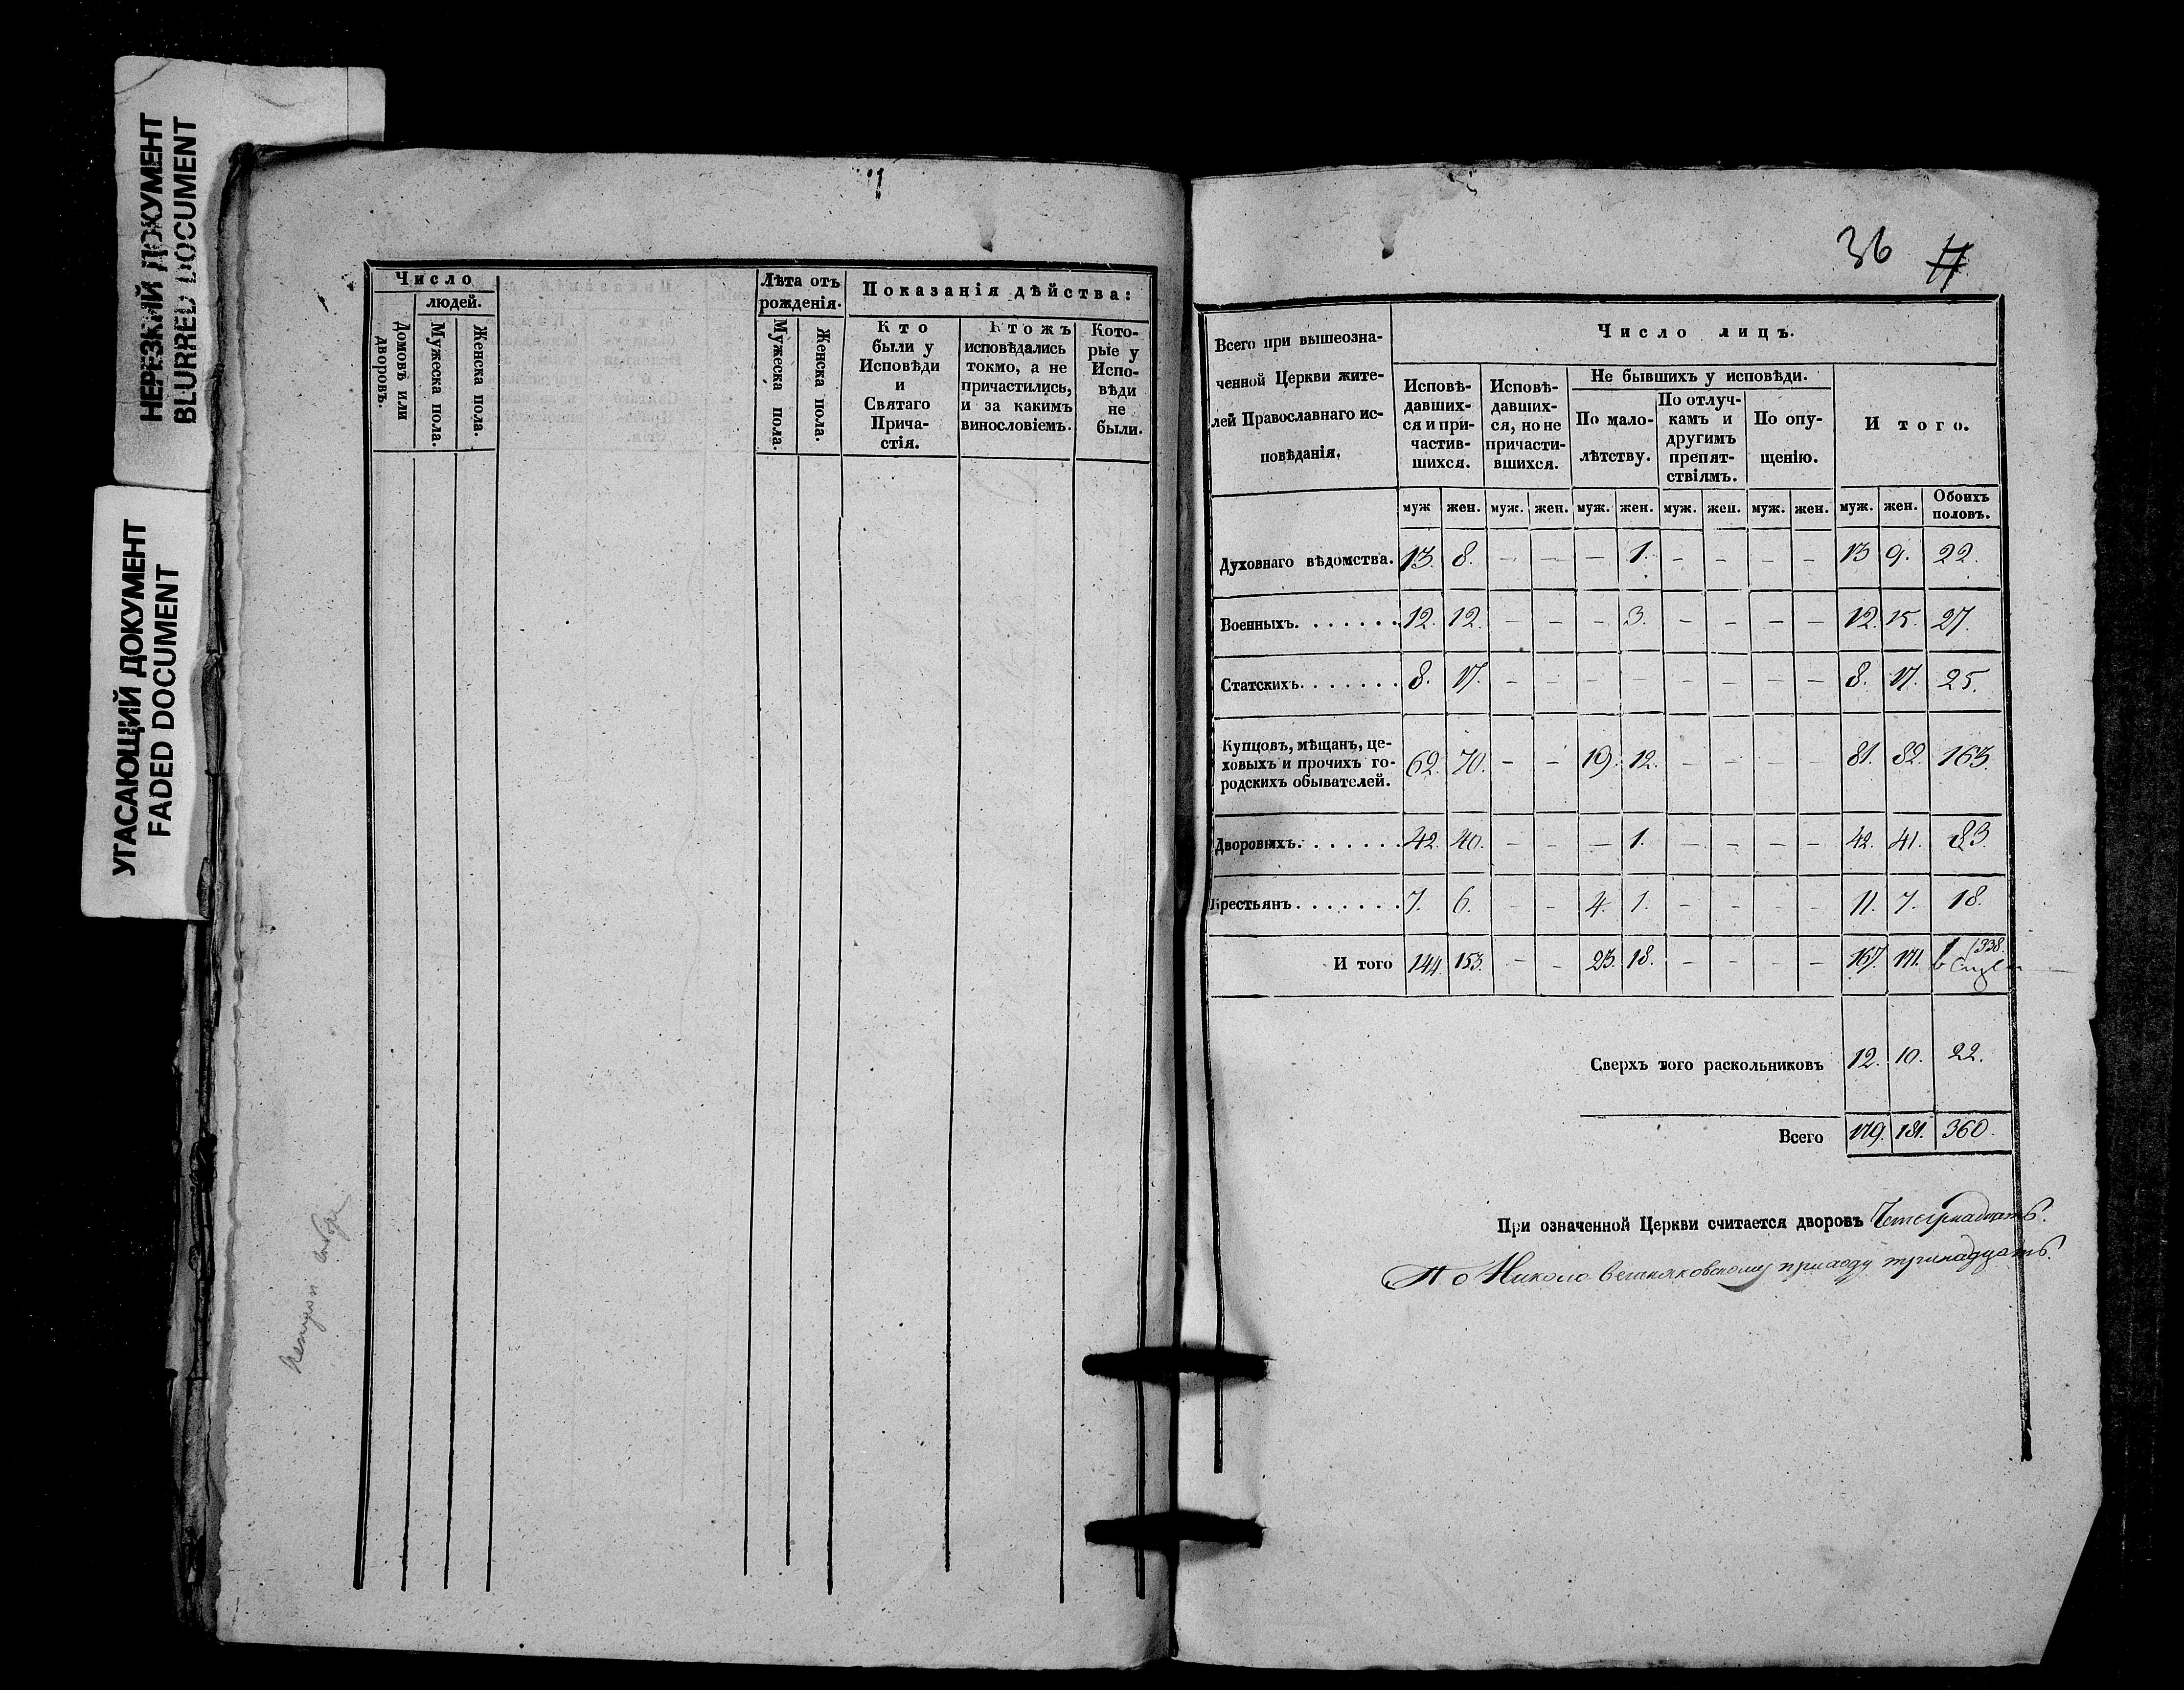 НЕРЕЗКИЙ ДОКУМЕНТ
BLURRED DOCUMENT
УГАСАЮЩИЙ ДОКУМЕНТ
FADED DOCUMENT
Число
людей.
Домовъ или дворовъ.
Мужеска пола.
Женска пола.
Лѣта отъ
рожденія.
Мужеска пола.
Женска пола.
Показанія дѣйства:
Кто
были у
Исповѣди
и
Святаго
Прича-
стія.
Ктожъ
исповѣдались
токмо, а не
причастились,
и за какимъ
винословіемъ.
Кото-
рые у
Испо-
вѣди
не
были.
36
Всего при вышеозна-
ченной Церкви жите-
лей Православнаго ис-
повѣданія.
Число лицъ.
Исповѣ-
давших-
ся и при-
частив-
шихся.
Исповѣ-
давших-
ся, но не
причасти-
вшихся.
Не бывшихъ у исповѣди.
По мало-
лѣтству.
По отлуч-
камъ и
другимъ
препят-
ствіямъ.
По опу-
щенію.
И того.
муж жен. муж. жен. муж. жен. муж. жен. муж. жен. муж. жен. Обоихъ половъ.
Духовнаго вѣдомства. 13. 8. — — — 1. — — — — 13 9. 22.
Военныхъ. . . . . . . 12. 12. — — — 3. — — — — 12. 15. 27.
Статскихъ. . . . . . . 8. 17. — — — — — — — — 8. 17. 25.
Купцовъ, мѣщанъ, це-
ховыхъ и прочихъ го-
родскихъ обывателей. 62. 70. — — 19. 12. — — — — 81. 82. 163.
Дворовыхъ. . . . . . . 42. 40. — — — 1. — — — — 42. 41. 83.
Крестьянъ. . . . . . . 7. 6. — — 4. 1. — — — — 11. 7. 18.
И того 144. 153. — — 23. 18. — — — — 167. 171. 338.
Сверхъ того раскольниковъ 12. 10. 22.
Всего 179. 181. 360.
При означенной Церкви считается дворовъ
По Николо приходу тринадцать.